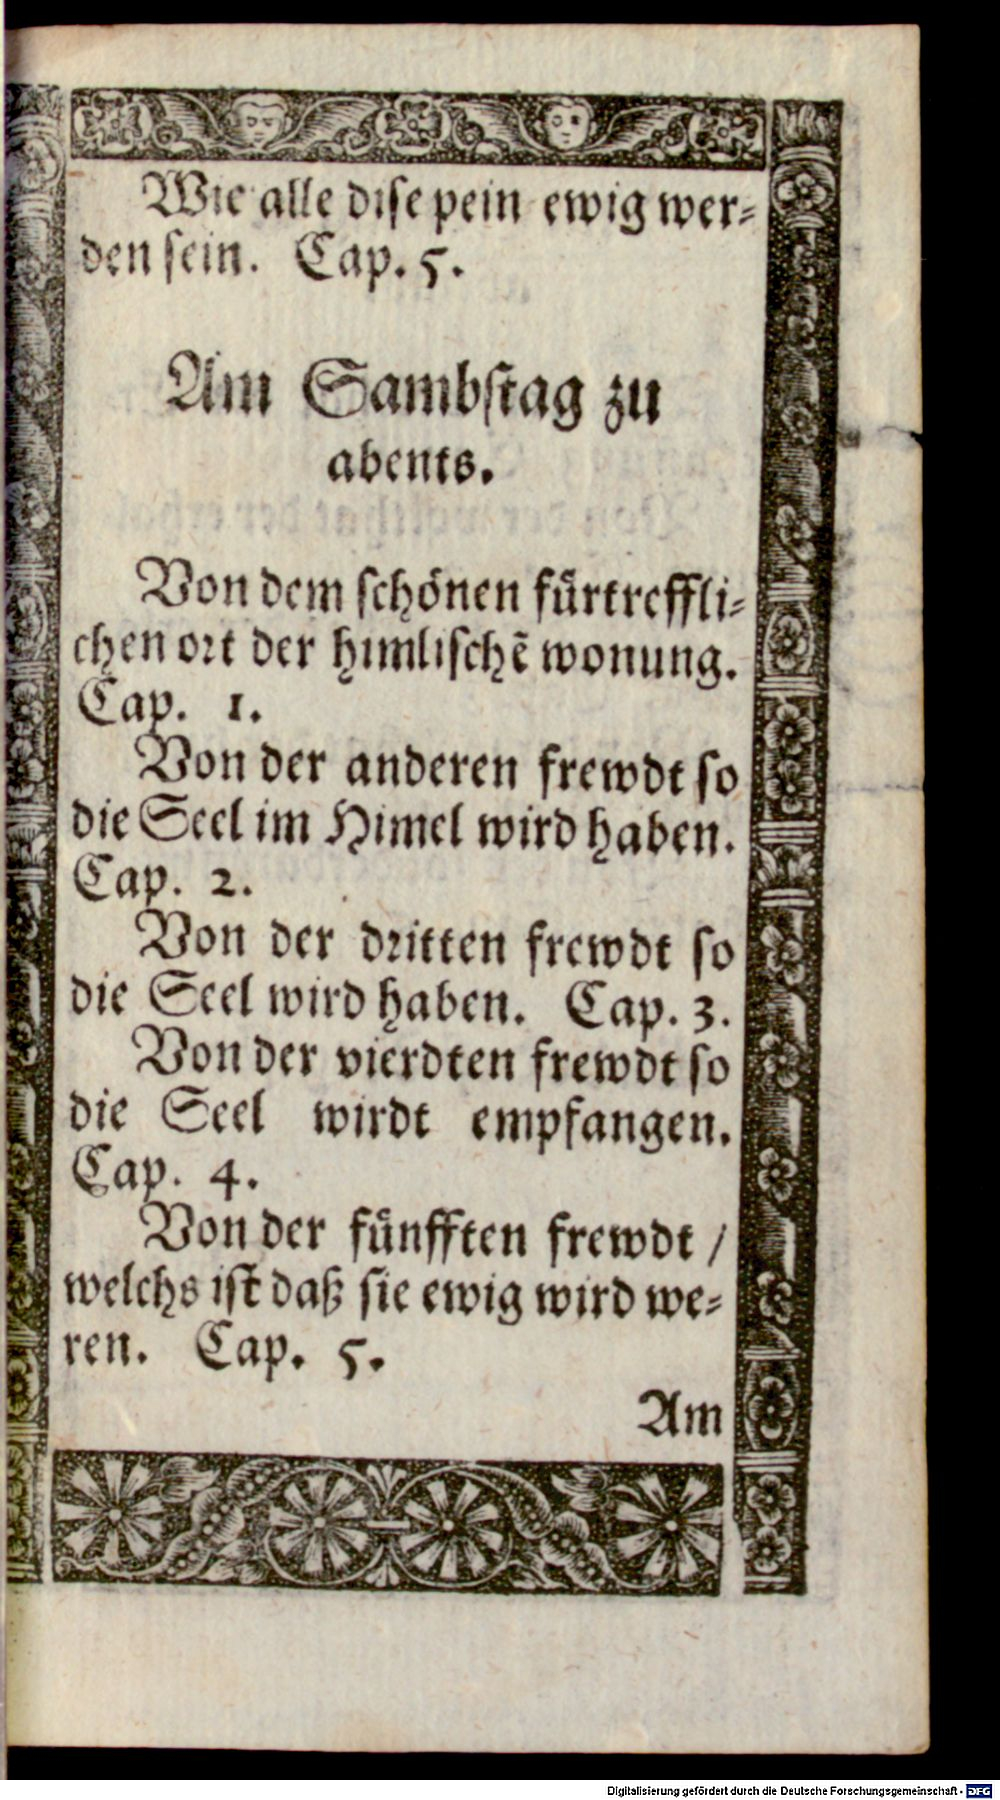 Wie alle dise pein ewig wer⸗
den sein. Cap. 5.
Am Sambstag zu
abents.
Von dem schönen fürtreffli⸗
chen ort der himlischẽ wonung.
Cap. 1.
Von der anderen frewdt so
die Seel im Himel wird haben.
Cap. 2.
Von der dritten frewdt so
die Seel wird haben. Cap. 3.
Von der vierdten frewdt so
die Seel wirdt empfangen.
Cap. 4.
Von der fünfften frewdt /
welchs ist daß sie ewig wird we⸗
ren. Cap. 5.
Am
Digitalisierung gefördert durch die Deutsche Forschungsgemeinschaft - DFG